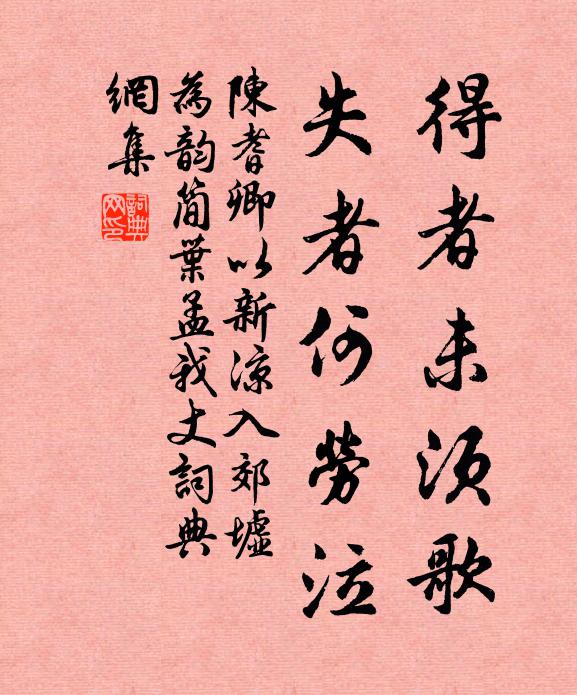 得者未須歌
失者何勞泣
陳耆卿以新涼入郊墟
為韵簡葉孟我丈詞典
網集
詞典
网印